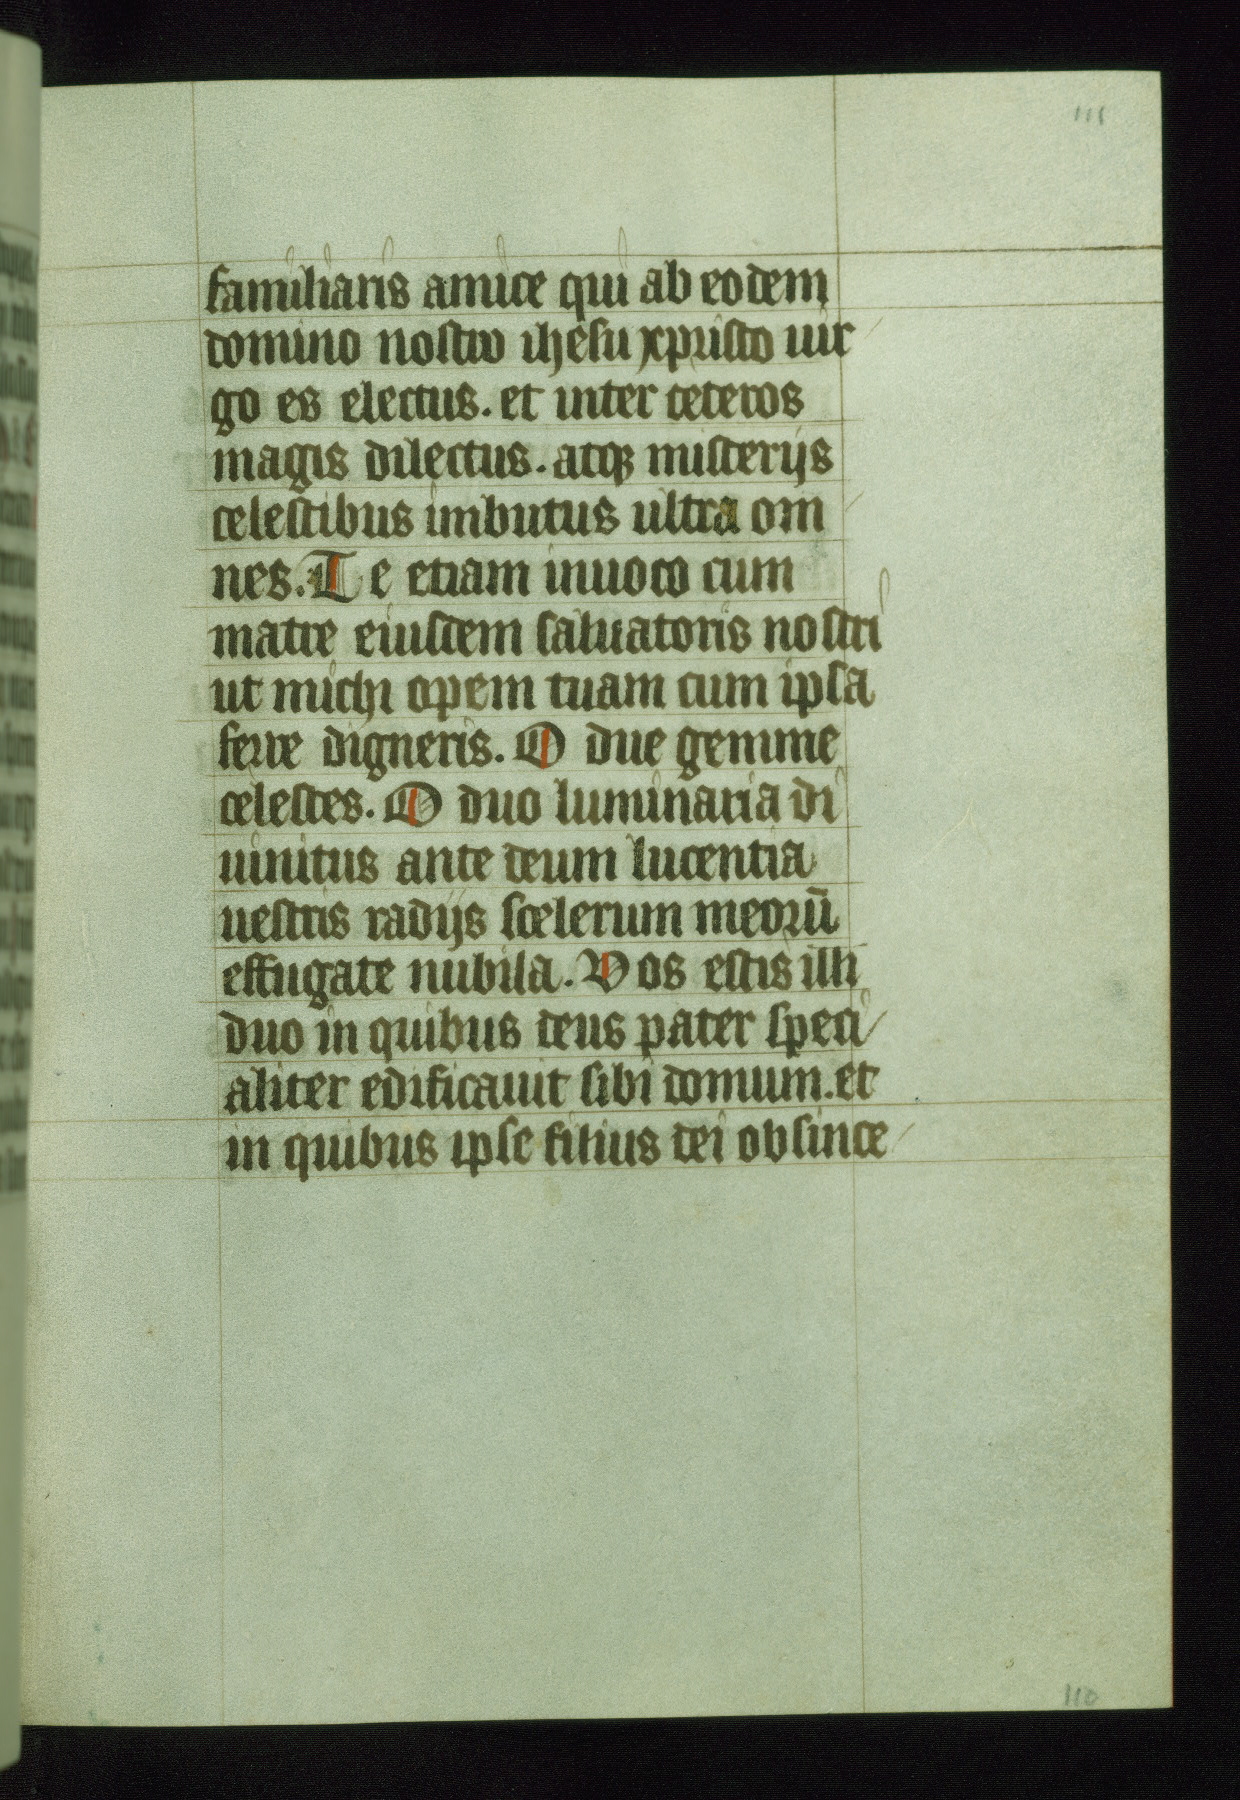 111
familiaris amice qui ab eodem
domino nostro ihesu xpristo uir
go es electus. et inter ceteros
magis dilectus. atqꝫ misterijs
celestibus imbutus ultra om
nes. Te etiam inuoco cum
matre eiusdem saluatoris nostri
ut michi opem tuam cum ipsa
ferre digneris. O due gemme
celestes. O duo luminaria di
uinitus ante deum lucentia
uestris radijs scelerum meorū
effugate nubila. Vos estis illi
duo in quibus deus pater speci
aliter edificauit sibi domum. et
in quibus ipse filius dei ob since
110